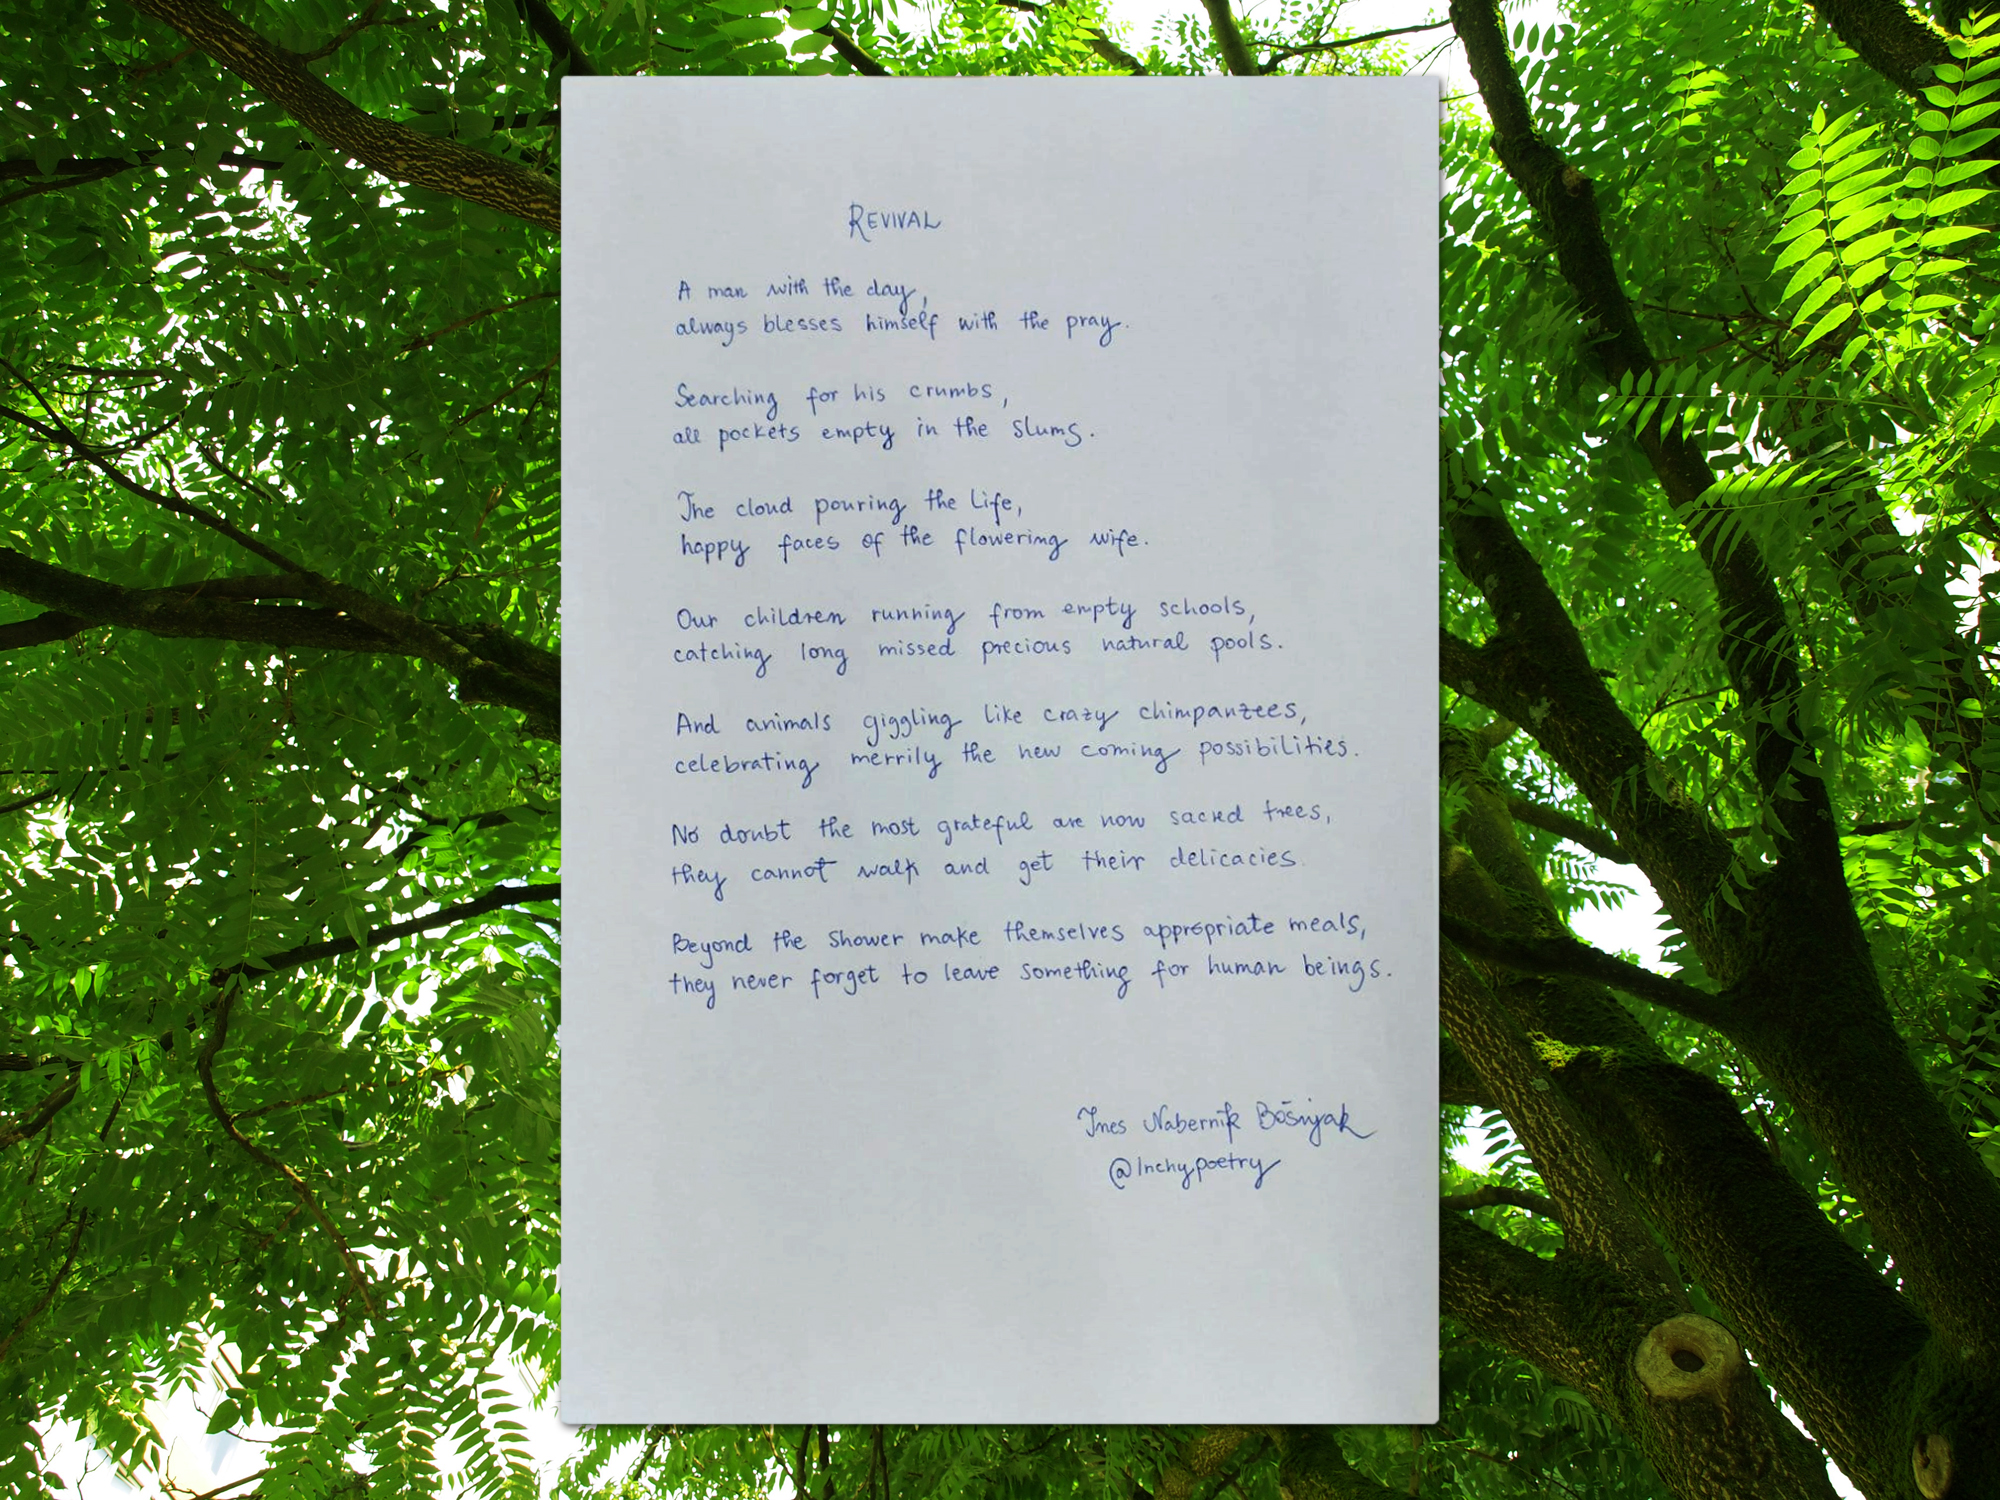 REVIVAL
A man with the day,
always blesses himself with the pray.
Searching for his crumbs,
all pockets empty in the slums.
The cloud pouring the life,
happy faces of the flowering wife.
Our children running from empty schools,
catching long missed precious natural pools.
And animals giggling like crazy chimpanzees,
celebrating merrily the new coming possibilities.
No doubt the most grateful are now sacred trees,
they cannot walk and get their delicacies.
Beyond the shower make themselves appropriate meals,
they never forget to leave something for human beings.
Ines Nabernik Bošnjak
@Inchypoetry